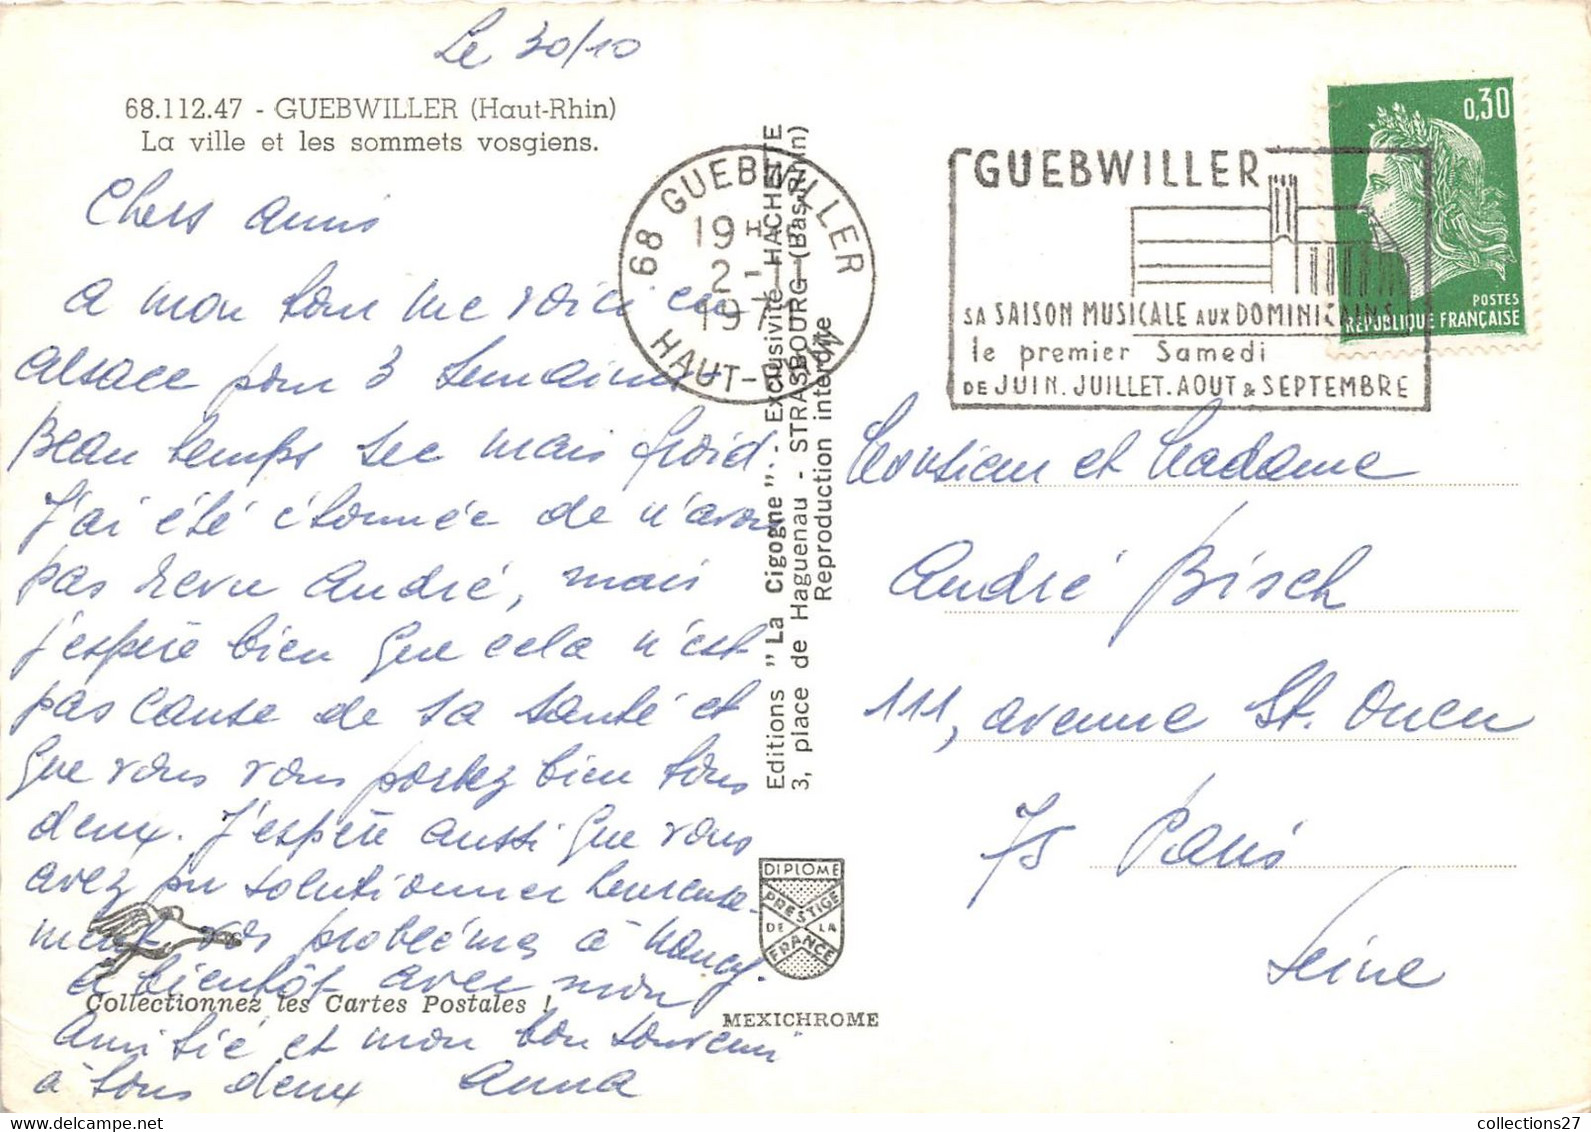 Le 30/10
68.112.47 - GUEBWILLER (Haut-Rhin)
La ville et les sommets vosgiens.
Chers amis
a mon tour me voici en
Alsace pour 3 semaines
Beau temps sec mais froid
J'ai été étonnée de n'avoir
pas revu André, mais
j'espère bien que cela n'est
pas cause de sa santé et
que vous vous portez bien tous
deux. J'espère aussi que vous
avez pu solutionner heureuse-
ment vos problèmes à Nancy.
à bientôt avec mon
amitié et mon bon souvenir
à tous deux Anna
Collectionnez les Cartes Postales !
68 GUEBWILLER
19 H
2 -
197
HAUT-RHIN
Editions "La Cigogne" - Exclusivité HACHETTE
3, place de Haguenau - STRASBOURG (Bas-Rhin)
Reproduction interdite
DIPLOME
PRESTIGE
DE LA
FRANCE
MEXICHROME
GUEBWILLER
SA SAISON MUSICALE AUX DOMINICAINS
le premier Samedi
DE JUIN. JUILLET. AOUT & SEPTEMBRE
0,30
POSTES
REPUBLIQUE FRANÇAISE
Monsieur et Madame
André Bisch
111, avenue St. Ouen
75 Paris
Seine
collections27